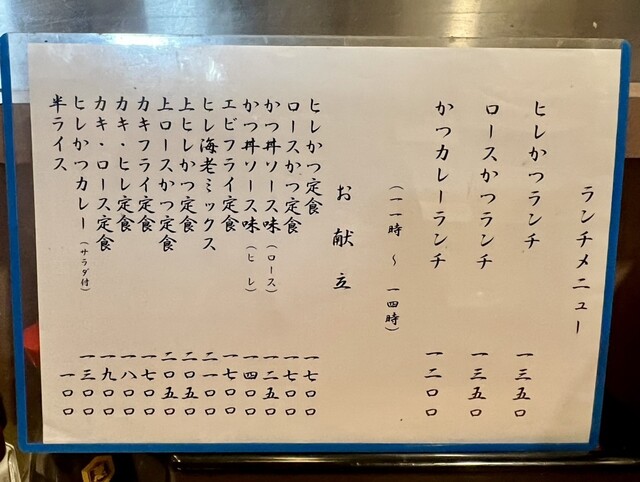 ランチメニュー
ヒレかつランチ 一三五〇
ロースかつランチ 一三五〇
かつカレーランチ 一二〇〇
(一一時 〜 一四時)
お献立
ヒレかつ定食 一七〇〇
ロースかつ定食 一七〇〇
かつ丼ソース味(ロース) 一二五〇
かつ丼ソース味(ヒレ) 一四〇〇
エビフライ定食 一七〇〇
ヒレ海老ミックス 二一〇〇
上ヒレかつ定食 二〇五〇
上ロースかつ定食 二〇五〇
カキフライ定食 一七〇〇
カキ・ヒレ定食 一八〇〇
カキ・ロース定食 一九〇〇
ヒレかつカレー(サラダ付) 一三〇〇
半ライス 一〇〇